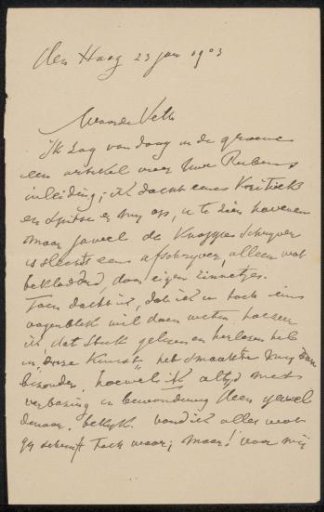 den Haag 23 jan 1903
Waarde Veth
Ik zag van daag in de groene
een artikel over Uwe Rubens
inleiding; ik dacht eens kritiek
en spitste er mij op, u te zien
maar jawel de schrijver
is slechts een afschrijver, alleen wat
beklad, door eigen zinnetjes.
Toen dacht ik, dat ik u toch eens
oogenblik wil doen weten hoezeer
ik dat stuk gelezen en herlezen heb
in onze Kunst het smaakte mij
bizonder, hoewel ik altyd met
verbazing en bewondering deen
bekyk. vond ik alles wat
gy schryft toch waar; maar! voor my